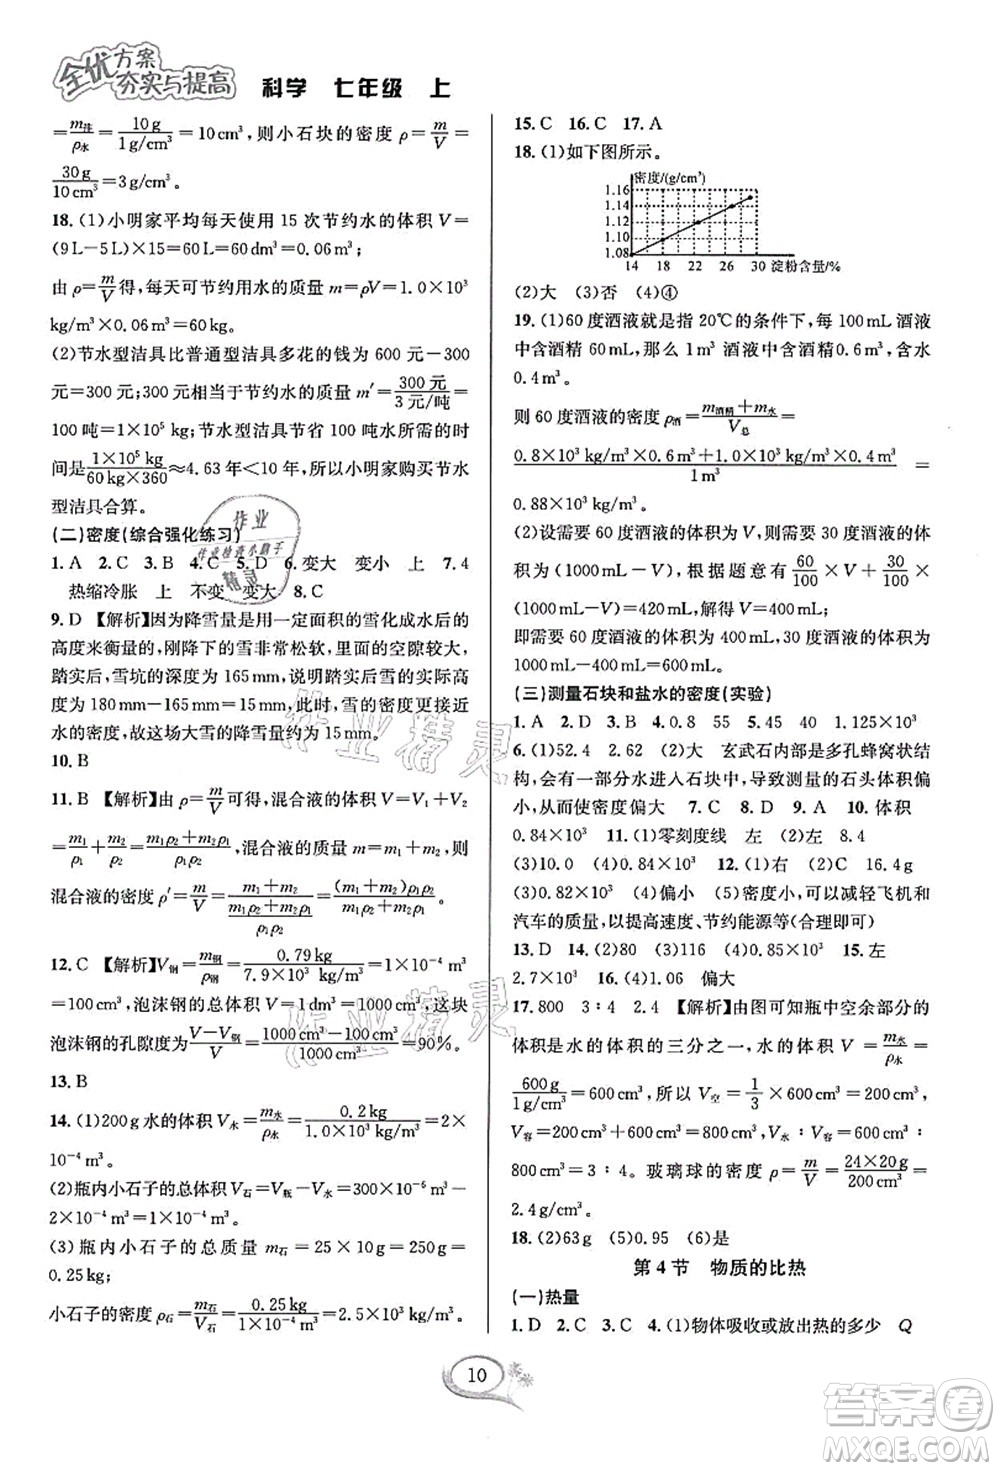 全优方案
夯实与提高
科学 七年级 上
=m注/ρ水=10 g/1 g/cm³=10 cm³，则小石块的密度 ρ=m/V=
30 g/10 cm³=3 g/cm³。
18. (1)小明家平均每天使用 15 次节约水的体积 V=
(9 L-5 L)×15=60 L=60 dm³=0.06 m³；
由 ρ=m/V得，每天可节约用水的质量 m=ρV=1.0×10³
kg/m³×0.06 m³=60 kg。
(2)节水型洁具比普通型洁具多花的钱为 600 元-300
元=300 元；300 元相当于节约水的质量 m′=300 元/3 元/吨=
100 吨=1×10⁵ kg；节水型洁具节省 300 元的水的时
间是1×10⁵ kg/60 kg×360≈4.63 年<10 年，所以小明家购买节水
型洁具合算。
(二)密度(综合强化练习)
1. A 2. C 3. B 4. C 5. D 6. 变大 变小 上 7. 4
热缩冷胀 上 不变 变大 8. C
9. D 【解析】因为降雪量是用一定面积的雪化成水后的
高度来衡量的，刚降下的雪非常松软，里面的空隙较大，
踏实后，雪坑的深度为 165 mm，说明踏实后雪的实际高
度为 180 mm-165 mm=15 mm，此时雪的密度更接近
水的密度，故这场大雪的降雪量约为 15 mm。
10. B
11. B 【解析】由 ρ=m/V得，混合液的体积 V=V₁+V₂
=m₁/ρ₁+m₂/ρ₂=m₁ρ₂+m₂ρ₁/ρ₁ρ₂，混合液的质量 m=m₁+m₂，则
混合液的密度 ρ′=m/V=m₁+m₂/(m₁ρ₂+m₂ρ₁/ρ₁ρ₂)=(m₁+m₂)ρ₁ρ₂/m₁ρ₂+m₂ρ₁。
12. C 【解析】V钢=m钢/ρ钢=0.79 kg/7.9×10³ kg/m³=1×10⁻⁴ m³
=100 cm³，泡沫钢的总体积 V=1 dm³=1000 cm³，这块
泡沫钢的孔隙度为V-V钢/V=1000 cm³-100 cm³/1000 cm³=90%。
13. B
14. (1)200 g 水的体积 V水=m水/ρ水=0.2 kg/1.0×10³ kg/m³=2×
10⁻⁴ m³。
(2)瓶内小石子的总体积 V石=V瓶-V水=300×10⁻⁶ m³-
2×10⁻⁴ m³=1×10⁻⁴ m³。
(3)瓶内小石子的总质量 m石=25×10 g=250 g=
0.25 kg，
小石子的密度 ρ石=m石/V石=0.25 kg/1×10⁻⁴ m³=2.5×10³ kg/m³。
15. C 16. C 17. A
18. (1)如下图所示。
密度/(g/cm³)
1.16
1.14
1.12
1.10
1.08
14 18 22 26 30 淀粉含量/%
(2)大 (3)否 (4)④
19. (1)60 度酒液就是指 20℃的条件下，每 100 mL 酒液
中含酒精 60 mL，那么 1 m³ 酒液中含酒精0.6 m³，水
0.4 m³。
则 60 度酒液的密度 ρ酒=m酒精+m水/V总=
0.8×10³ kg/m³×0.6 m³+1.0×10³ kg/m³×0.4 m³/1 m³=
0.88×10³ kg/m³。
(2)设需要 60 度酒液的体积为 V，需 30 度酒液的体积
为(1000 mL-V)，根据题意有60/100×V+30/100×
(1000 mL-V)=420 mL，解得 V=400 mL。
即需 60 度酒液的体积为 400 mL，30 度酒液的体积为
1000 mL-400 mL=600 mL。
(三)测量石块和盐水的密度(实验)
1. A 2. D 3. B 4. 0.8 55 5. 45 40 1.125×10³
6. (1)52.4 2.62 (2)大 玄武石内部是多孔蜂窝状结
构，会有一部分水进入石块中，导致测量的石头体积偏
小，从而使密度偏大 7. C 8. D 9. A 10. 体积
0.84×10³ 11. (1)零刻度线 左 (2)左 8.4
(3)10.0 (4)0.84×10³ 12. (1)右 (2)C 16.4 g
(3)0.82×10³ (4)偏小 (5)密度小，可以减轻飞机和
汽车的质量，以提高速度、节约能源等(合理即可)
13. D 14. (2)80 (3)116 (4)0.85×10³ 15. 左
2.7×10³ 16. (4)1.06 偏大
17. 800 3∶4 2.4 【解析】由图可知瓶中空余部分的
体积是水的体积的三分之一，水的体积 V=m水/ρ水=
600 g/1 g/cm³=600 cm³，所以 V空=1/3×600 cm³=200 cm³，
V容=200 cm³+600 cm³=800 cm³，V水∶V容=600 cm³∶
800 cm³=3∶4。玻璃球的密度 ρ=m/V=24×20 g/200 cm³=
2.4 g/cm³。
18. (2)63 g (5)D (6)是
第 4 节 物质的比热
(一)热量
1. D 2. C 3. C 4. (1)物体吸收或放出热的多少 Q
10
作业
作业检查小助手
精灵
作业精灵
作业精灵
答案圈
MXQE.COM